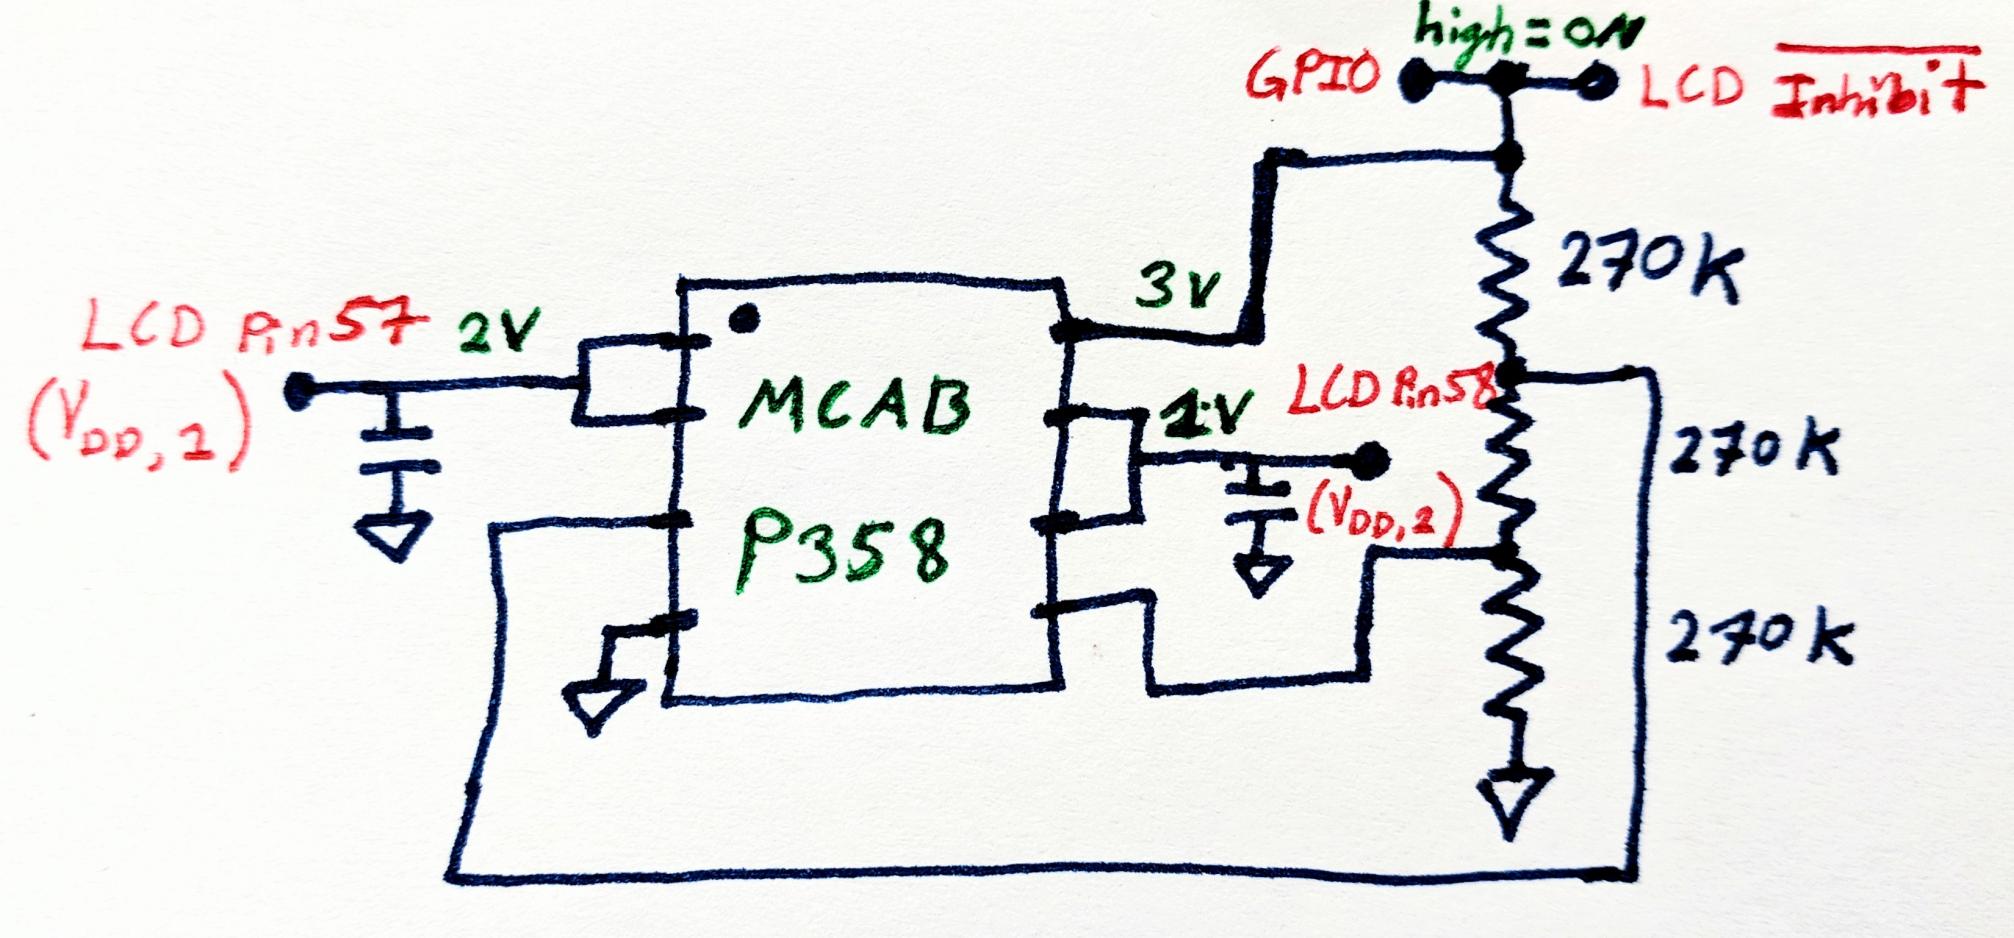 high = ON
GPIO
LCD Inhibit
270K
3V
LCD Pin57
2V
(VDD,1)
MCAB
P358
LCD Pin58
1V
(VDD,2)
270K
270K